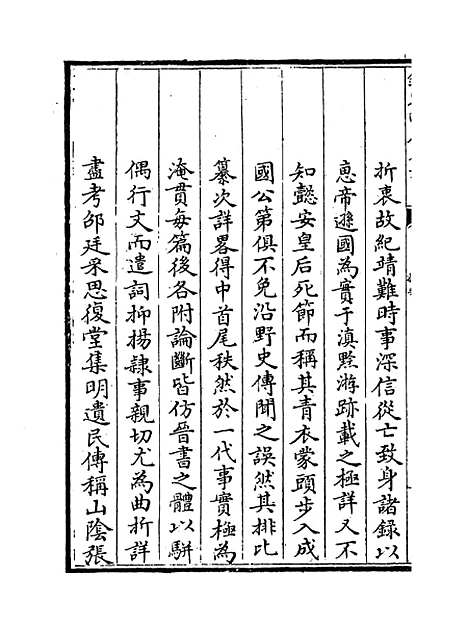 折衷故紀靖難時事深信從亡致身諸錄以
恵帝遜國為實于滇黔游跡載之極詳又不
知懿安皇后死節而稱其青衣蒙頭步入成
國公第俱不免沿野史傳聞之誤然其排比
纂次詳畧得中首尾秩然於一代事實極為
淹貫每篇後各附論斷皆仿晉書之體以駢
偶行文而遣詞抑揚隷事親切尤為曲折詳
盡考邵廷采思復堂集明遺民傳稱山陰張